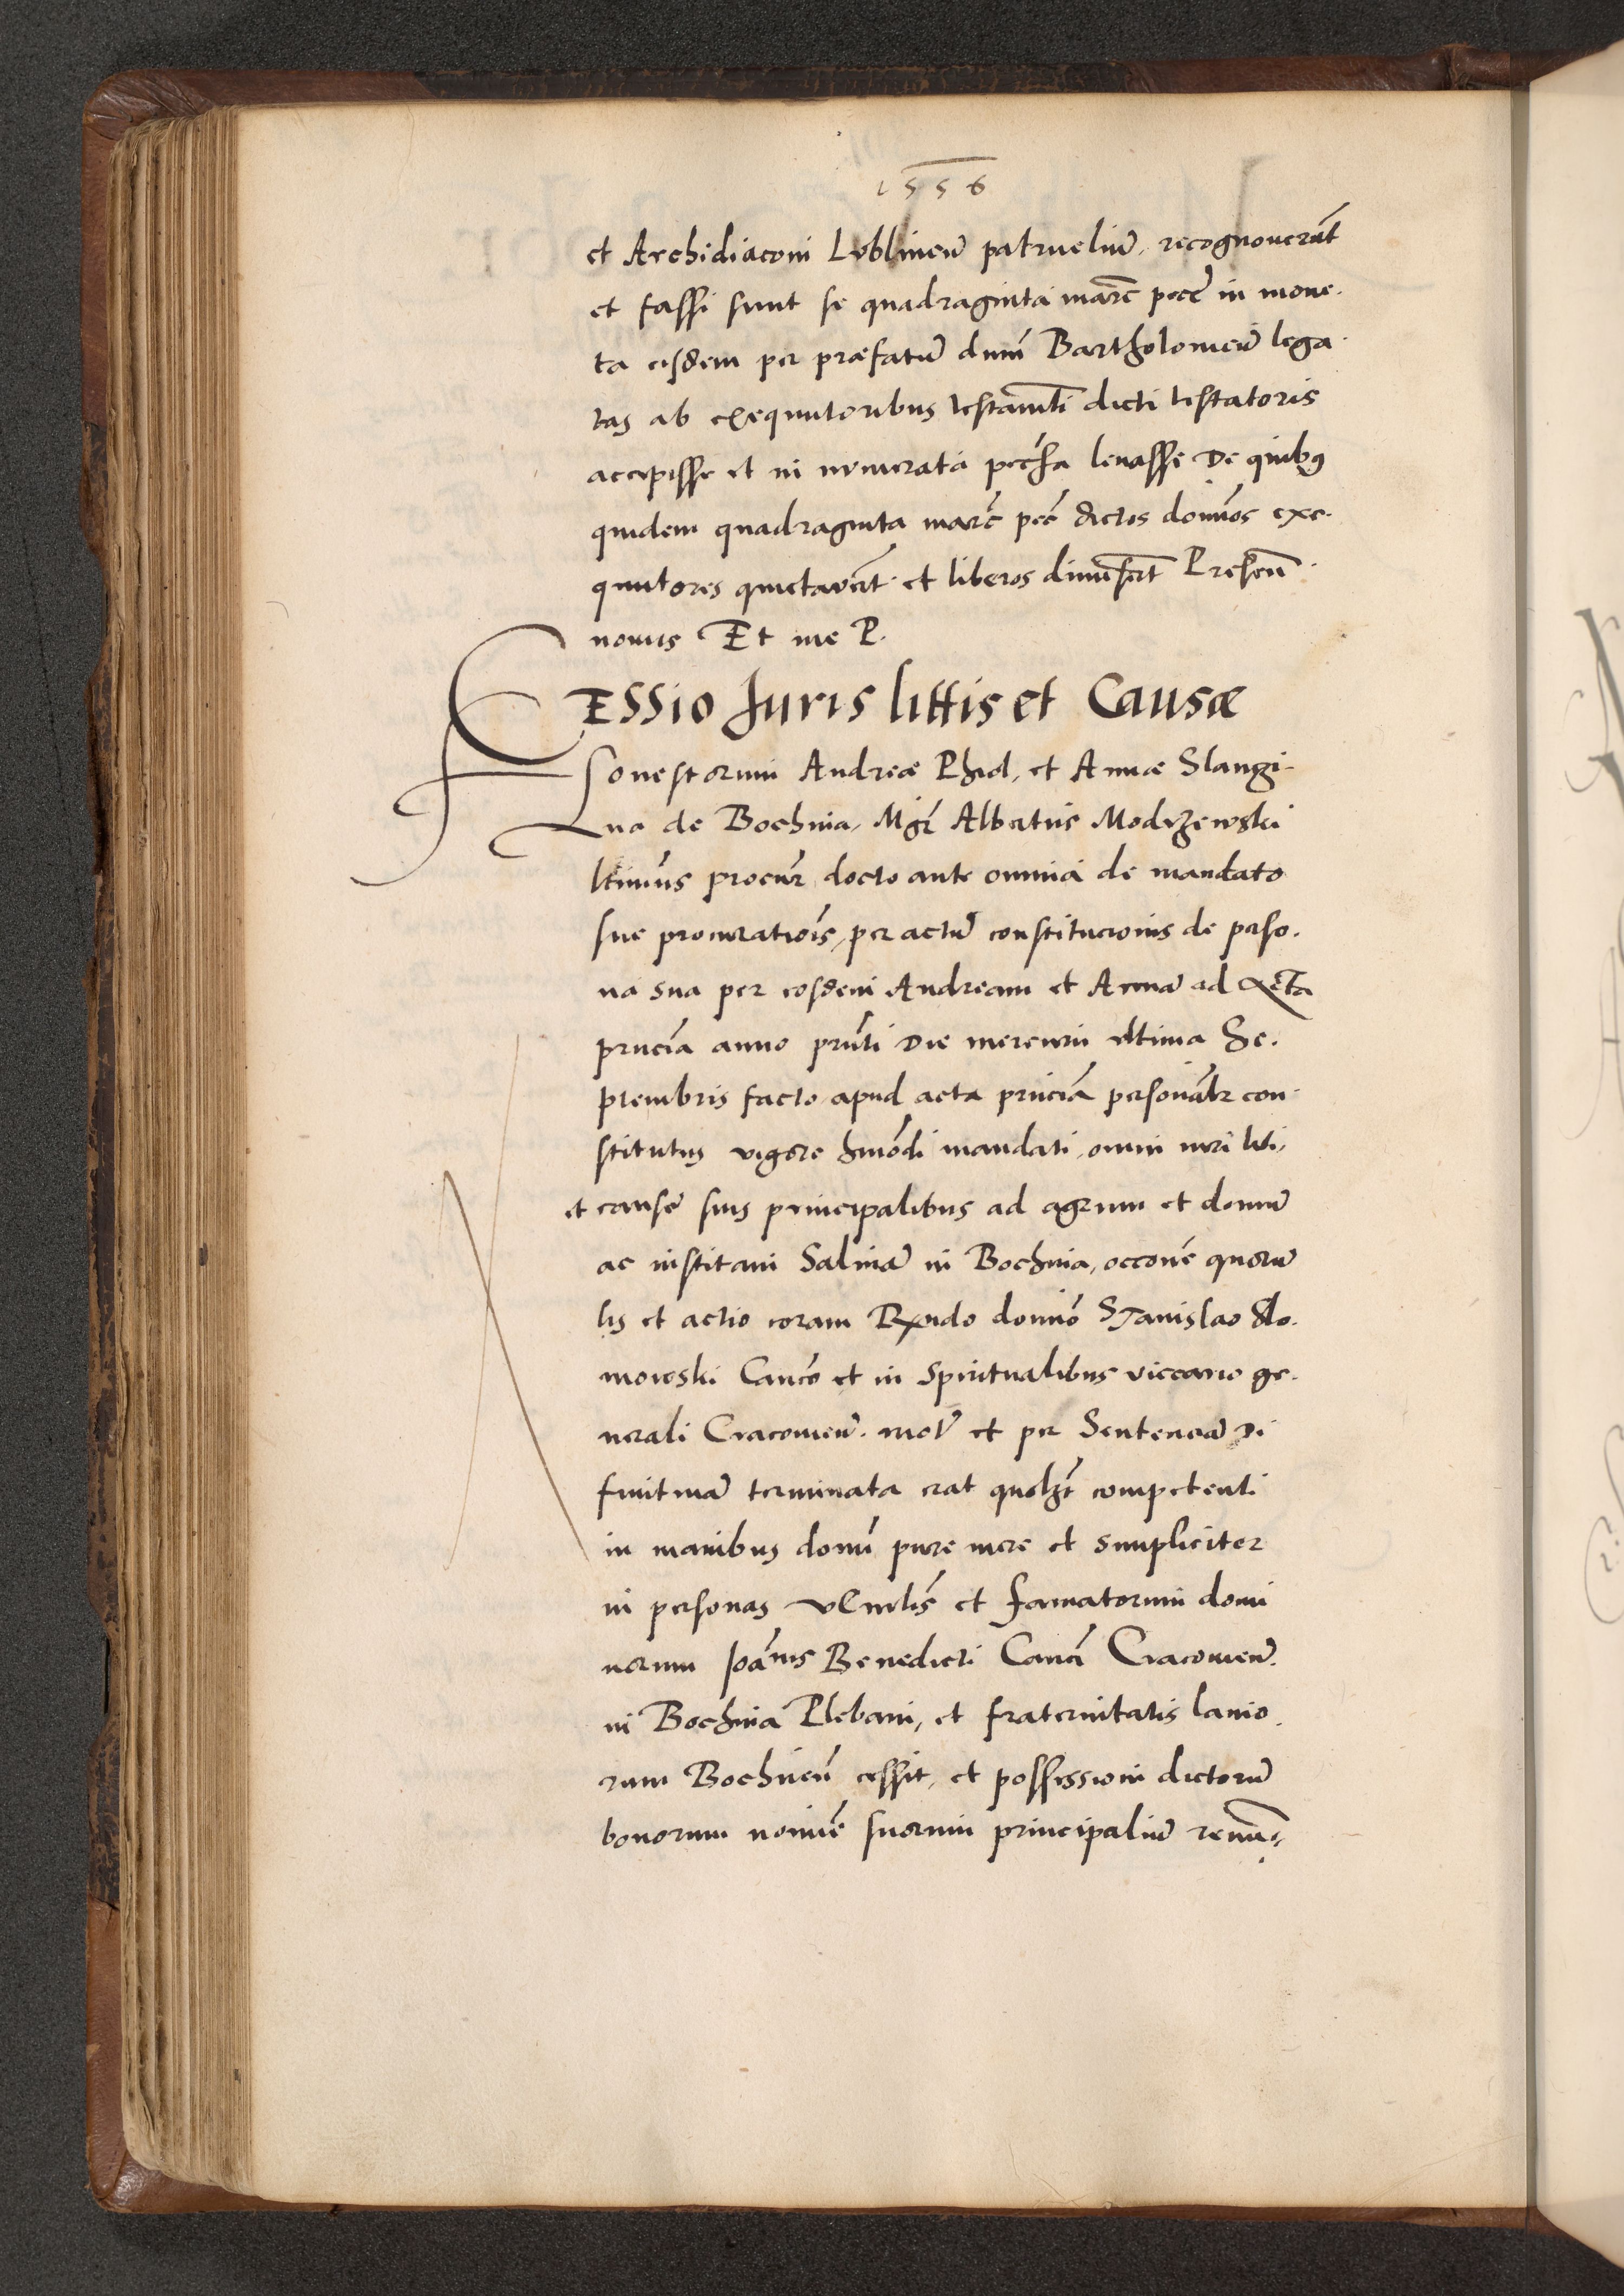 1556
et Archidiaconi Lublineñ patrueliũ, recognoverũt
et fassi sunt se quadraginta marc̃ pecc̃ in mone-
ta eisdem per præfatũ dnm̃ Bartholomeũ lega-
tas ab exequutoribus testam̃ti dicti testatoris
accepisse et in numerata pec̃ia levasse De quibus
quidem quadraginta marc̃ pec̃ dictos domĩos exe-
quutores quictaver̃t et liberos dimiser̃t Preseñ
nomis Et me P.
CESSIO Juris littis et Causæ
Honestorum Andreæ Phiol, et Annæ Slangi-
na de Bochnia, Mgr̃ Albertus Modrzewski
ltimũs procur̃ docto ante omnia de mandato
sue procuratiõis, per actũ constitucionis de perso-
na sua per eosdem Andream et Annã ad acta
prñcia anno prñti Die mercurii ultima Se-
ptembris facto apud acta prñcia personalr̃ con-
stitutus vigore hmõdi mandati, omni iuri liti,
et causæ suis principalibus ad agrum et domũ
ac institam Salinã in Bochnia, occõne quorũ
lis et actio coram Rñdo domĩo Stanislao Slo-
mowski Canc̃o et in Spiritualibus viccario ge-
nerali Cracovieñ. mot̃ et per Sentenciã Di
finitivã terminata erat quolzt̃ competenti
in manibus domĩ pure mere et simpliciter
in personas veñrlis et famatorum domi
norum Joãnis Benedicti Canc̃i Cracovieñ.
in Bochnia Plebani, et fraternitatis lanio-
rum Bochneñ cessit, et possessioni dictorũ
bonorum noiñe suorum principaliũ renũ-